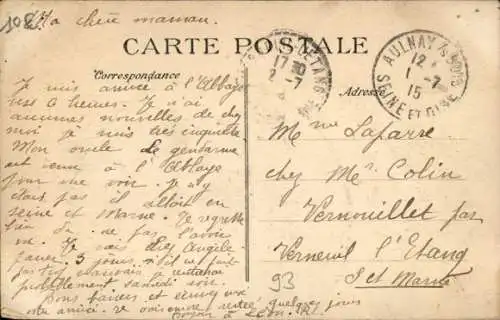 108
Ma chère maman.
CARTE POSTALE
Correspondance
Adresse
AULNAY S BOIS
12
1 -7
15
SEINE ET OISE
ETANG
17 30
2 -7
Je suis arrivée à l'Abbaye
6 heures. Je n'ai
aucunes nouvelles de chez
moi je suis très inquiète
Mon oncle le gendarme
est venu à l'Abbaye
pour me voir. Je n'y
étais pas il allait en
seine et Marne. Je regrette
bien de pas l'avoir
vu. Je vais chez Angèle
passer 3 jours s'il ne fait
pas trop mauvais
probablement samedi soir.
bons baisers et
Mme Lafarre
chez Mr Colin
Vernouillet par
Verneuil l'Etang
S et Marne
93
quelques jours